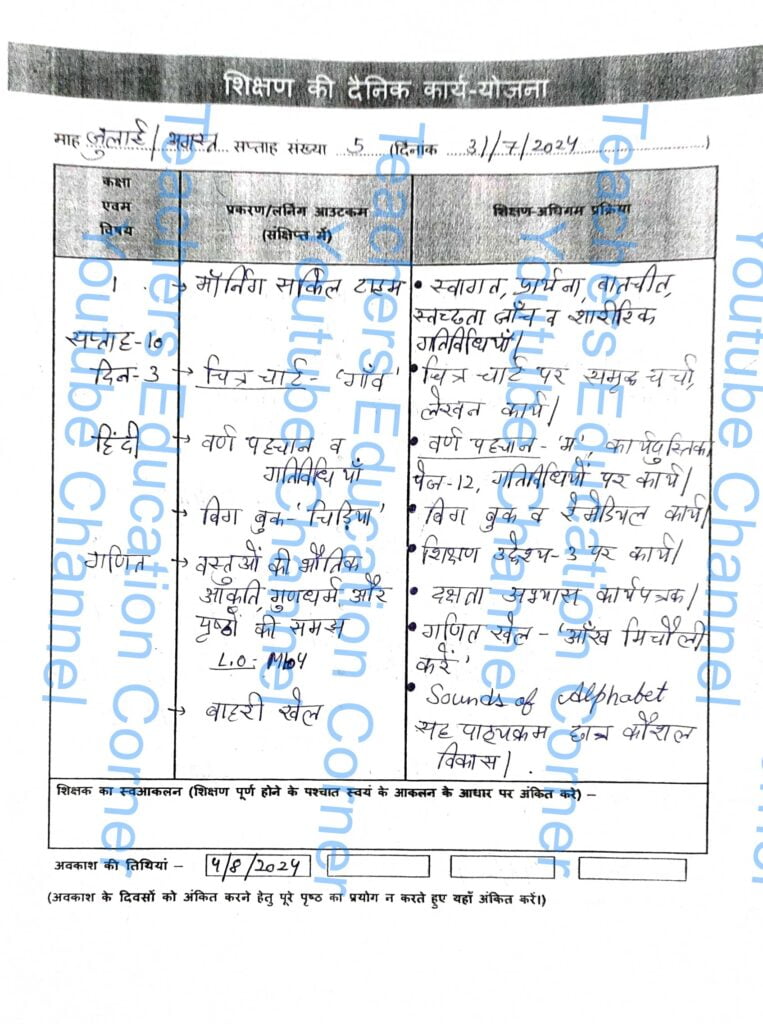 शिक्षण की दैनिक कार्य-योजना
माह जुलाई/अगस्त सप्ताह संख्या 5 (दिनांक 31/7/2024)
कक्षा
एवम
विषय
प्रकरण/लर्निग आउटकम
(संक्षिप्त में)
शिक्षण-अधिगम प्रक्रिया
1
सप्ताह-10
दिन-3
हिंदी
गणित
→ मॉर्निंग सर्किल टाइम
→ चित्र चार्ट- 'गाँव'
→ वर्ण पहचान व
गतिविधियाँ
→ बिग बुक-'चिड़िया'
→ वस्तुओं की भौतिक
आकृति, गुणधर्म और
पृष्ठों की समझ
L.O: M104
→ बाहरी खेल
• स्वागत, प्रार्थना, बातचीत,
स्वच्छता जाँच व शारीरिक
गतिविधियाँ।
• चित्र चार्ट पर समृद्ध चर्चा,
लेखन कार्य।
• वर्ण पहचान - 'म', कार्यपुस्तिका
पेज-12, गतिविधियों पर कार्य।
• बिग बुक व रेमेडियल कार्य।
• शिक्षण उद्देश्य-3 पर कार्य।
• दक्षता अभ्यास कार्यपत्रक।
• गणित खेल - 'आँख मिचौली
करें'
• Sounds of Alphabet
सह पाठ्यक्रम छात्र कौशल
विकास।
शिक्षक का स्वआकलन (शिक्षण पूर्ण होने के पश्चात स्वयं के आकलन के आधार पर अंकित करे) –
अवकाश की तिथियां – 4/8/2024
(अवकाश के दिवसों को अंकित करने हेतु पूरे पृष्ठ का प्रयोग न करते हुए यहाँ अंकित करें।)
Teachers Education Corner
Youtube Channel
Teachers Education Corner
Youtube Channel
Teachers Education Corner
Youtube Channel